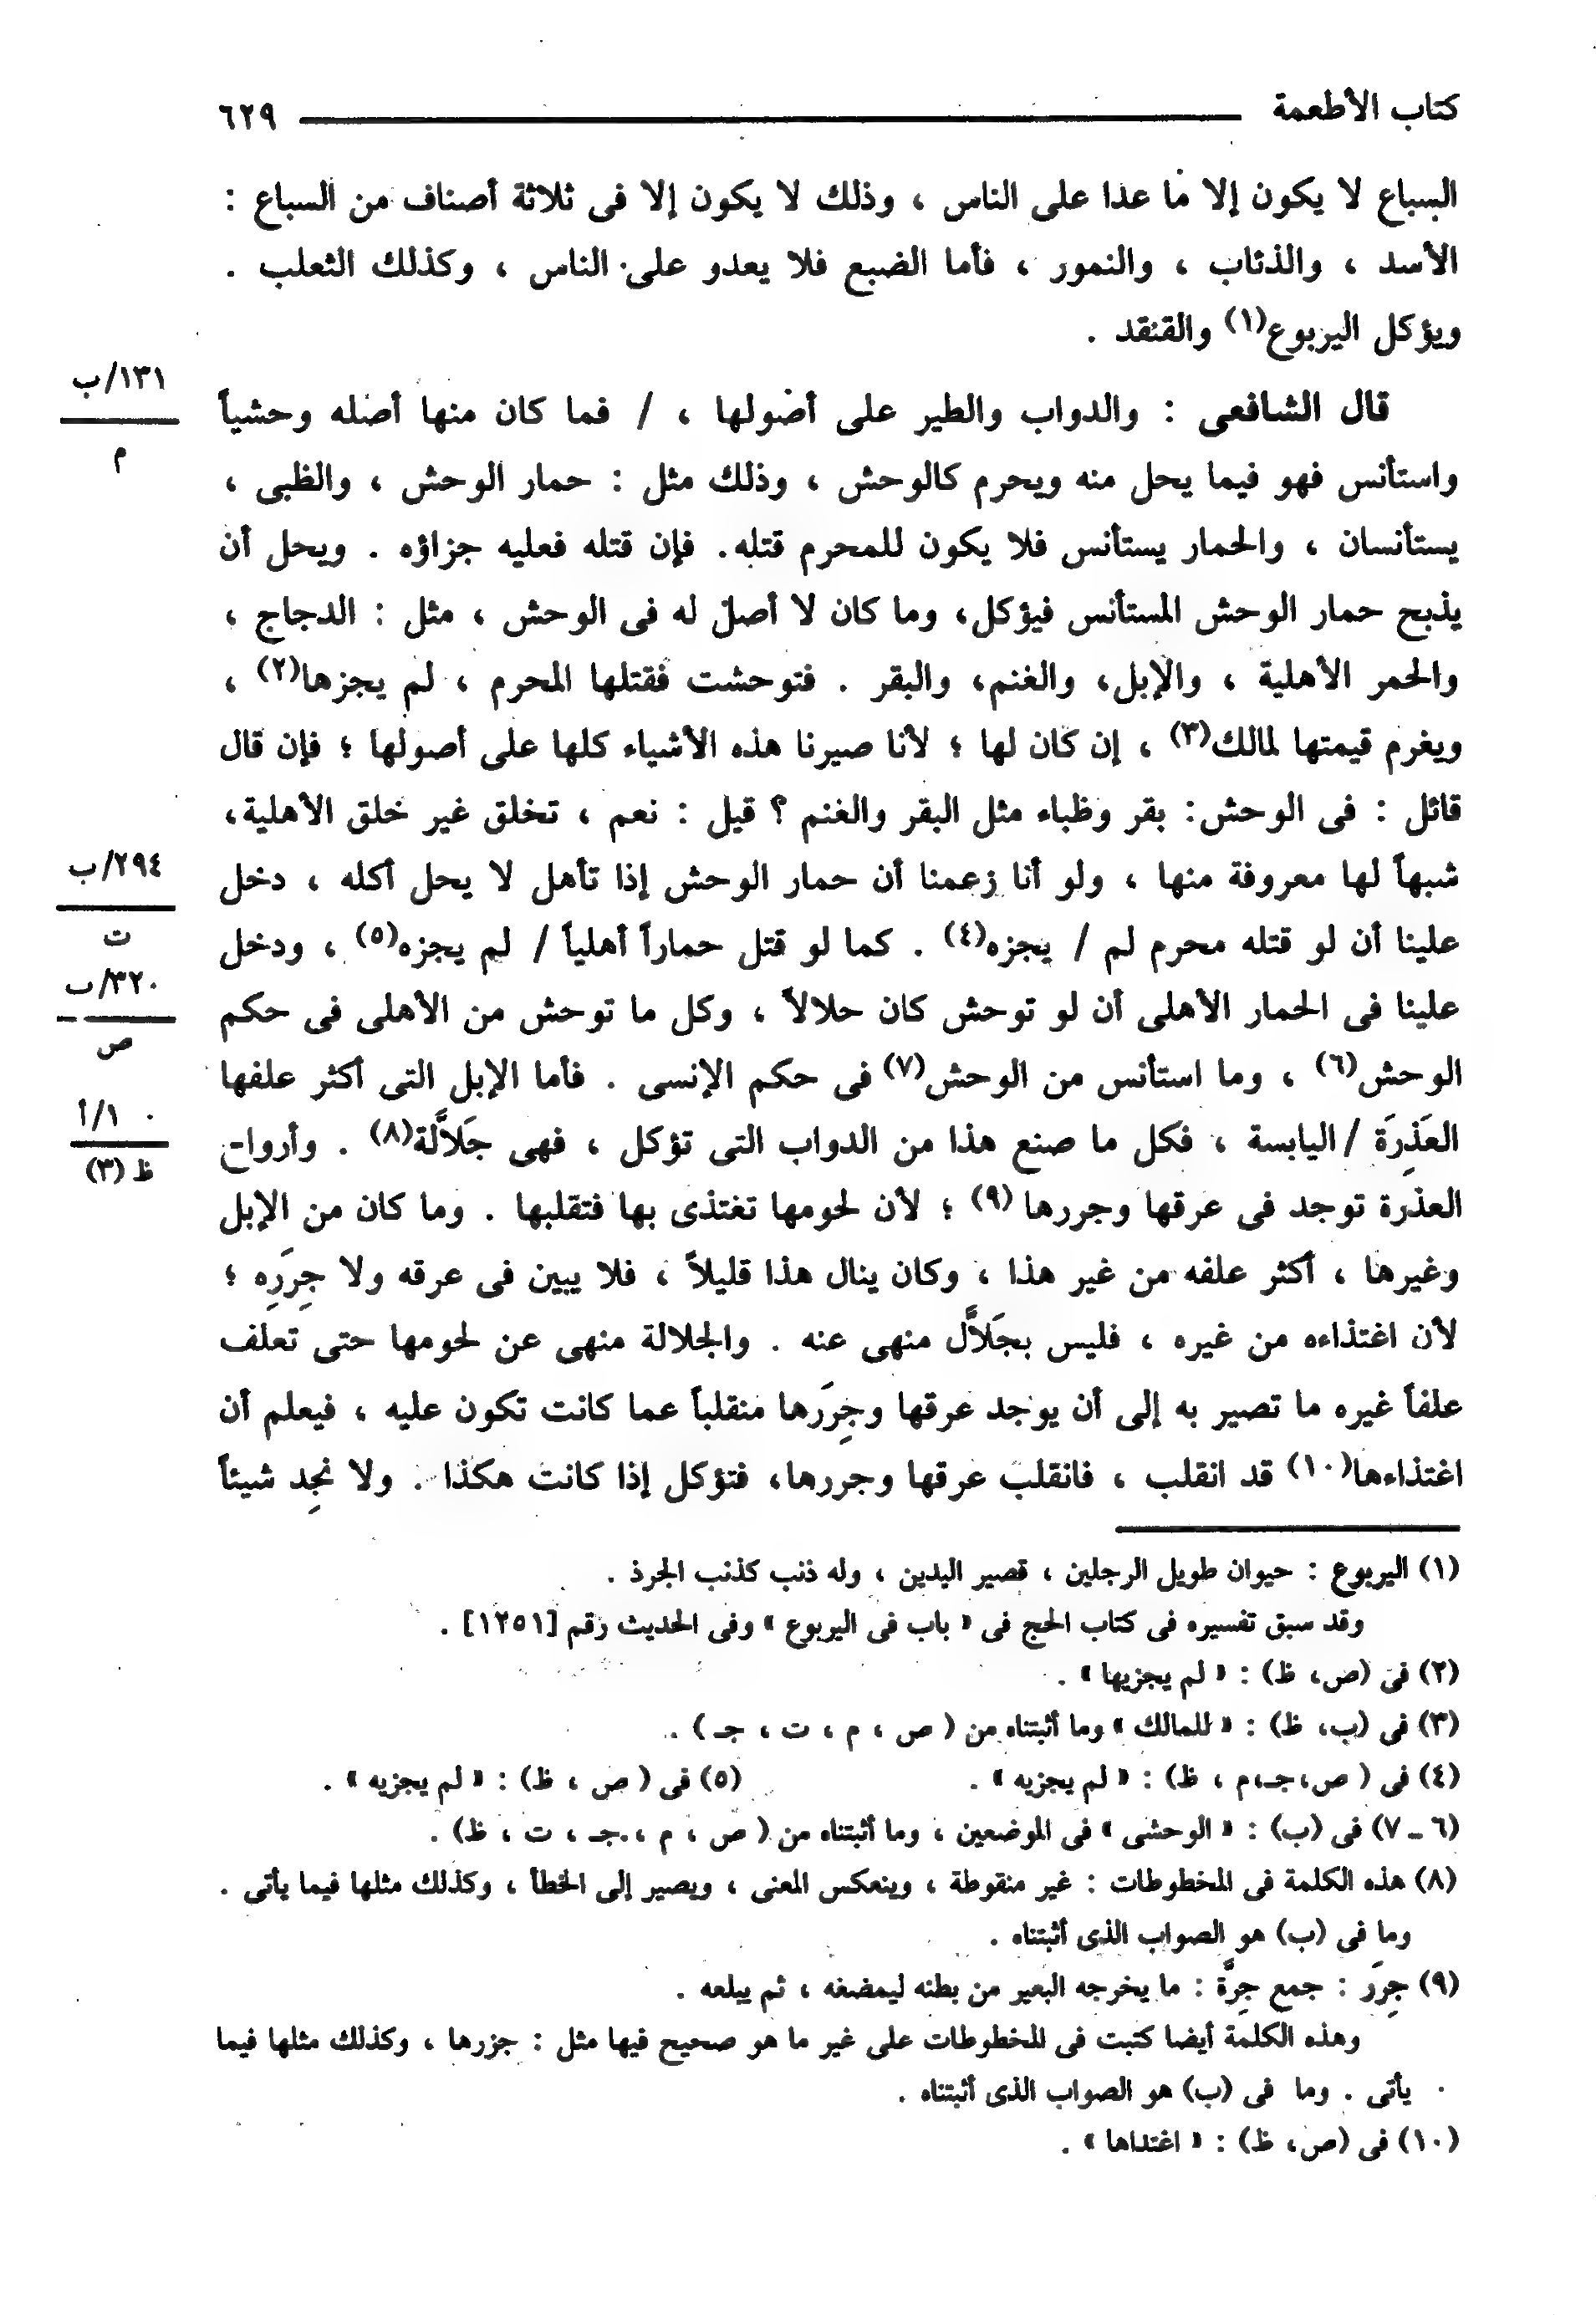 كتاب الأطعمة ــــــــــــــــــــ ٦٢٩
السباع لا يكون إلا ما عدا على الناس ، وذلك لا يكون إلا فى ثلاثة أصناف من السباع :
الأسد ، والذئاب ، والنمور ، فأما الضبع فلا يعدو على الناس ، وكذلك الثعلب .
ويؤكل اليربوع(١) والقنقد .
١٣١/ب
م
قال الشافعى : والدواب والطير على أصولها ، / فما كان منها أصله وحشياً
واستأنس فهو فيما يحل منه ويحرم كالوحش ، وذلك مثل : حمار الوحش ، والظبى ،
يستأنسان ، والحمار يستأنس فلا يكون للمحرم قتله. فإن قتله فعليه جزاؤه . ويحل أن
يذبح حمار الوحش المستأنس فيؤكل، وما كان لا أصل له فى الوحش ، مثل : الدجاج ،
والحمر الأهلية ، والإبل، والغنم، والبقر . فتوحشت فقتلها المحرم ، لم يجزها(٢) ،
ويغرم قيمتها لمالك(٣) ، إن كان لها ؛ لأنا صيرنا هذه الأشياء كلها على أصولها ؛ فإن قال
قائل : فى الوحش: بقر وظباء مثل البقر والغنم ؟ قيل : نعم ، تخلق غير خلق الأهلية،
شبهاً لها معروفة منها ، ولو أنا زعمنا أن حمار الوحش إذا تأهل لا يحل أكله ، دخل
٢٩٤/ب
ت
علينا أن لو قتله محرم لم / يجزه(٤) . كما لو قتل حماراً أهلياً / لم يجزه(٥) ، ودخل
٣٢٠/ب
ص
علينا فى الحمار الأهلى أن لو توحش كان حلالاً ، وكل ما توحش من الأهلى فى حكم
الوحش(٦) ، وما استأنس من الوحش(٧) فى حكم الإنسى . فأما الإبل التى أكثر علفها
١٠/أ
ظ (٣)
العَذِرَة / اليابسة ، فكل ما صنع هذا من الدواب التى تؤكل ، فهى جَلاَّلة(٨) . وأرواح
العذرة توجد فى عرقها وجررها (٩) ؛ لأن لحومها تغتذى بها فتقلبها . وما كان من الإبل
وغيرها ، أكثر علفه من غير هذا ، وكان ينال هذا قليلاً ، فلا يبين فى عرقه ولا جِرَرِه ؛
لأن اغتذاءه من غيره ، فليس بجَلاَّل منهى عنه . والجلالة منهى عن لحومها حتى تعلف
علفاً غيره ما تصير به إلى أن يوجد عرقها وجِرَرها منقلباً عما كانت تكون عليه ، فيعلم أن
اغتذاءها(١٠) قد انقلب ، فانقلب عرقها وجررها، فتؤكل إذا كانت هكذا . ولا نجِد شيئاً
(١) اليربوع : حيوان طويل الرجلين ، قصير اليدين ، وله ذنب كذنب الجرذ .
وقد سبق تفسيره فى كتاب الحج فى « باب فى اليربوع » وفى الحديث رقم [١٢٥١] .
(٢) فى (ص، ظ) : « لم يجزيها » .
(٣) فى (ب، ظ) : « للمالك » وما أثبتناه من ( ص ، م ، ت ، جـ ) .
(٤) فى ( ص،جـ،م ، ظ) : « لم يجزيه » .
(٥) فى ( ص ، ظ) : « لم يجزيه » .
(٦ ـ ٧) فى (ب) : « الوحشى » فى الموضعين ، وما أثبتناه من ( ص ، م ، جـ ، ت ، ظ) .
(٨) هذه الكلمة فى المخطوطات : غير منقوطة ، وينعكس المعنى ، ويصير إلى الخطأ ، وكذلك مثلها فيما يأتى .
وما فى (ب) هو الصواب الذى أثبتناه .
(٩) جِرَر : جمع جِرَّة : ما يخرجه البعير من بطنه ليمضغه ، ثم يبلعه .
وهذه الكلمة أيضا كتبت فى المخطوطات على غير ما هو صحيح فيها مثل : جزرها ، وكذلك مثلها فيما
يأتى . وما فى (ب) هو الصواب الذى أثبتناه .
(١٠) فى (ص، ظ) : « اغتداها » .